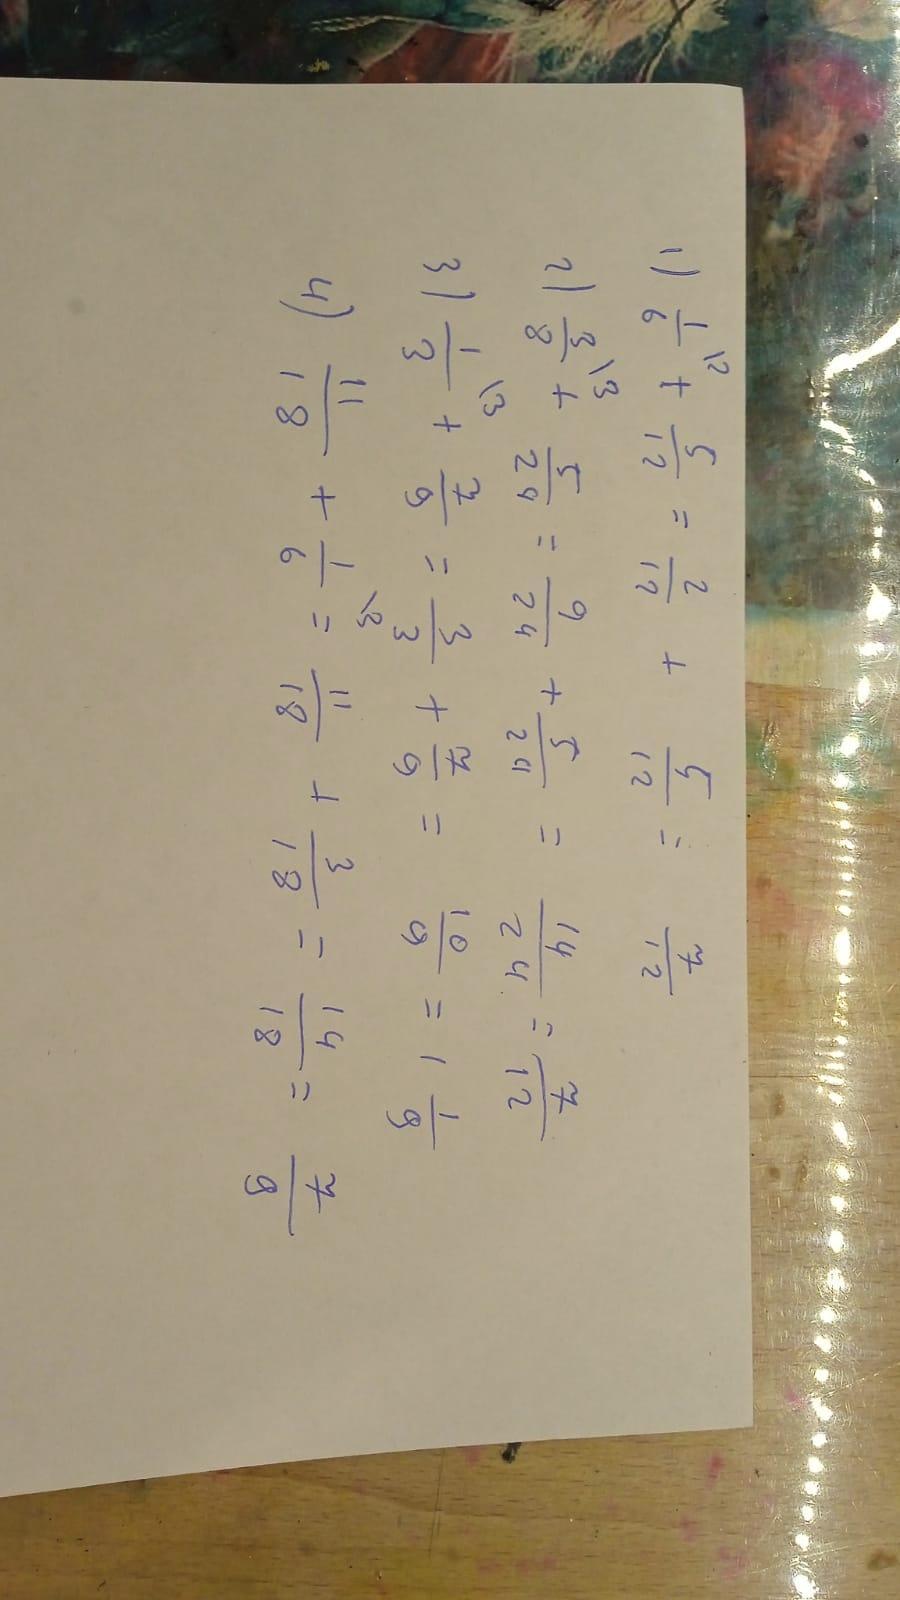 1) 1/6 \2 + 5/12 = 2/12 + 5/12 = 7/12
2) 3/8 \3 + 5/24 = 9/24 + 5/24 = 14/24 = 7/12
3) 1/3 \3 + 7/9 = 3/3 + 7/9 = 10/9 = 1 1/9
4) 11/18 + 1/6 \3 = 11/18 + 3/18 = 14/18 = 7/9